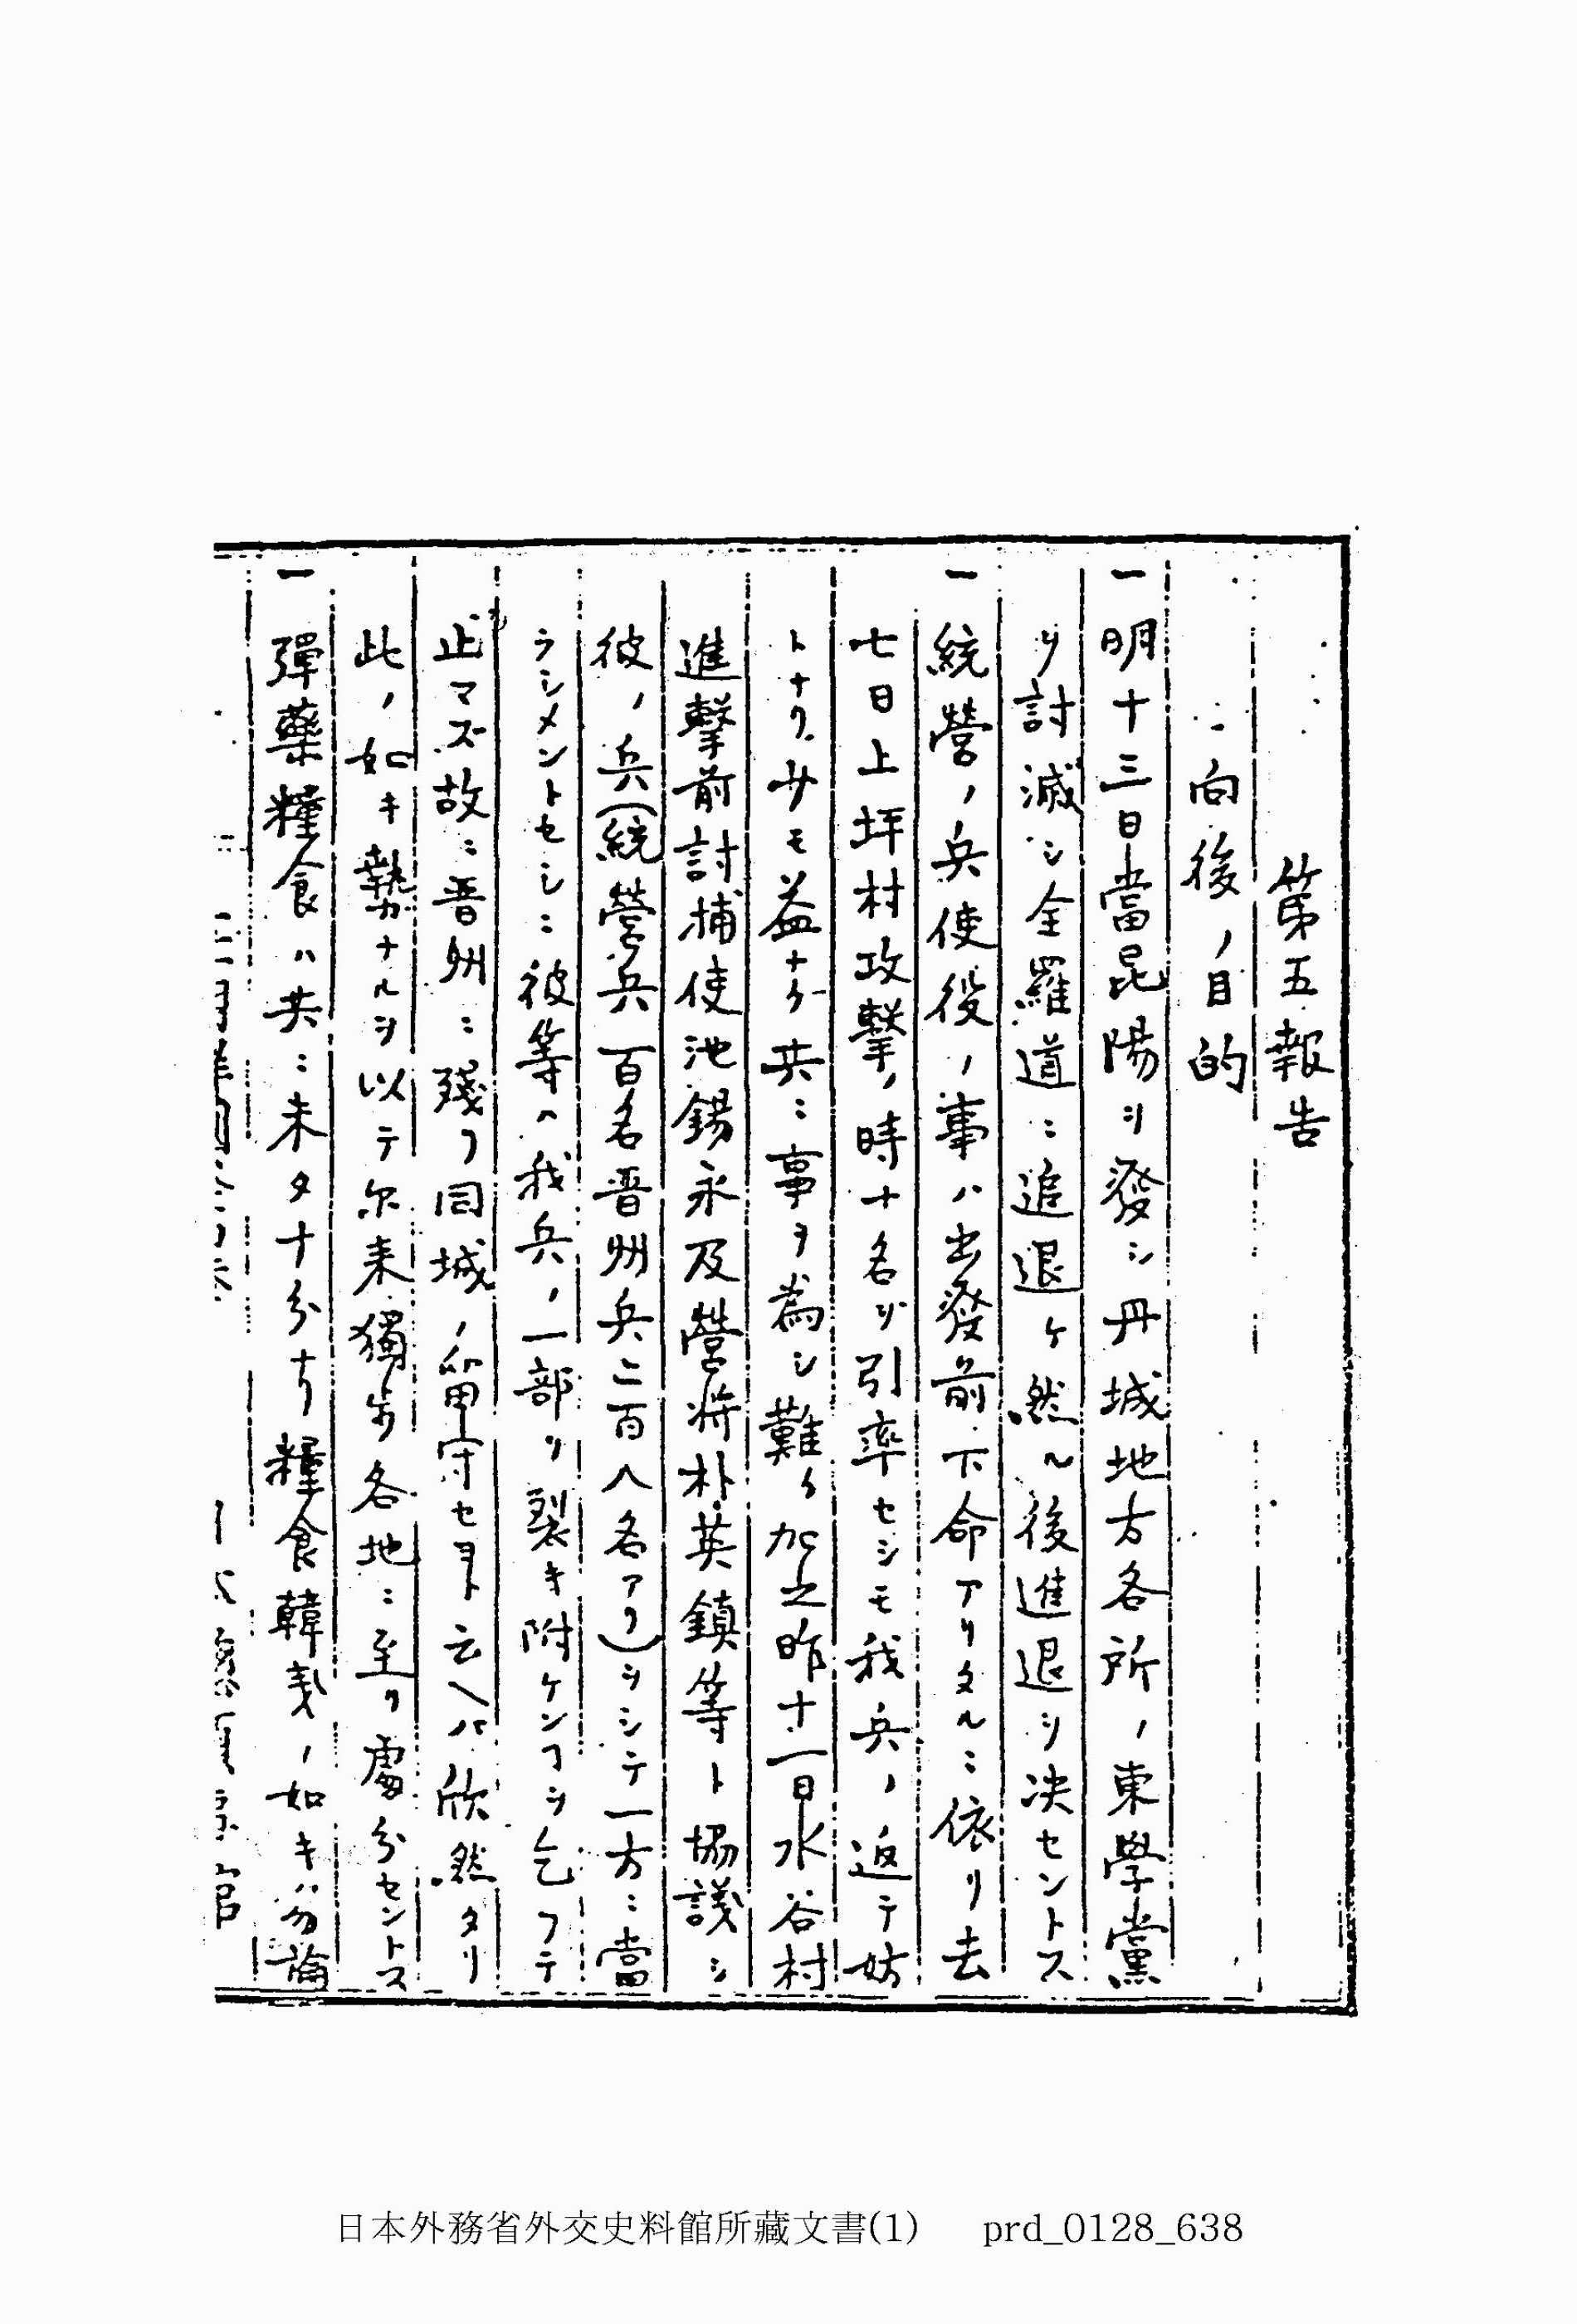 第五報告
向後ノ目的
一明十三日當昆陽ヲ發シ丹城地方各所ノ東學黨
ヲ討滅シ全羅道ニ追退ケ然ル後進退ヲ决セントス
一統營ノ兵使役ノ事ハ出發前下命アリタルニ依リ去
七日上坪村攻撃ノ時十名ヲ引率セシモ我兵ノ返テ妨
トナリサモ益ナケ共ニ事ヲ為シ難ク加之昨十一日水谷村
進撃前討捕使池錫永及營將朴英鎮等ト協議シ
彼ノ兵(統營兵百名晋州兵二百八名アリ)ヲシテ一方ニ當
ラシメントセシニ彼等ハ我兵ノ一部ヲ裂キ附ケンヿヲ乞フテ
止マズ故ニ晋州ニ殘リ同城ノ留守セヨト云ヘバ欣然タリ
此ノ如キ勢ナルヲ以テ尓来獨歩各地ニ至リ處分セントス
一彈藥糧食ハ共ニ未タ十分ナリ糧食韓錢ノ如キハ勿論